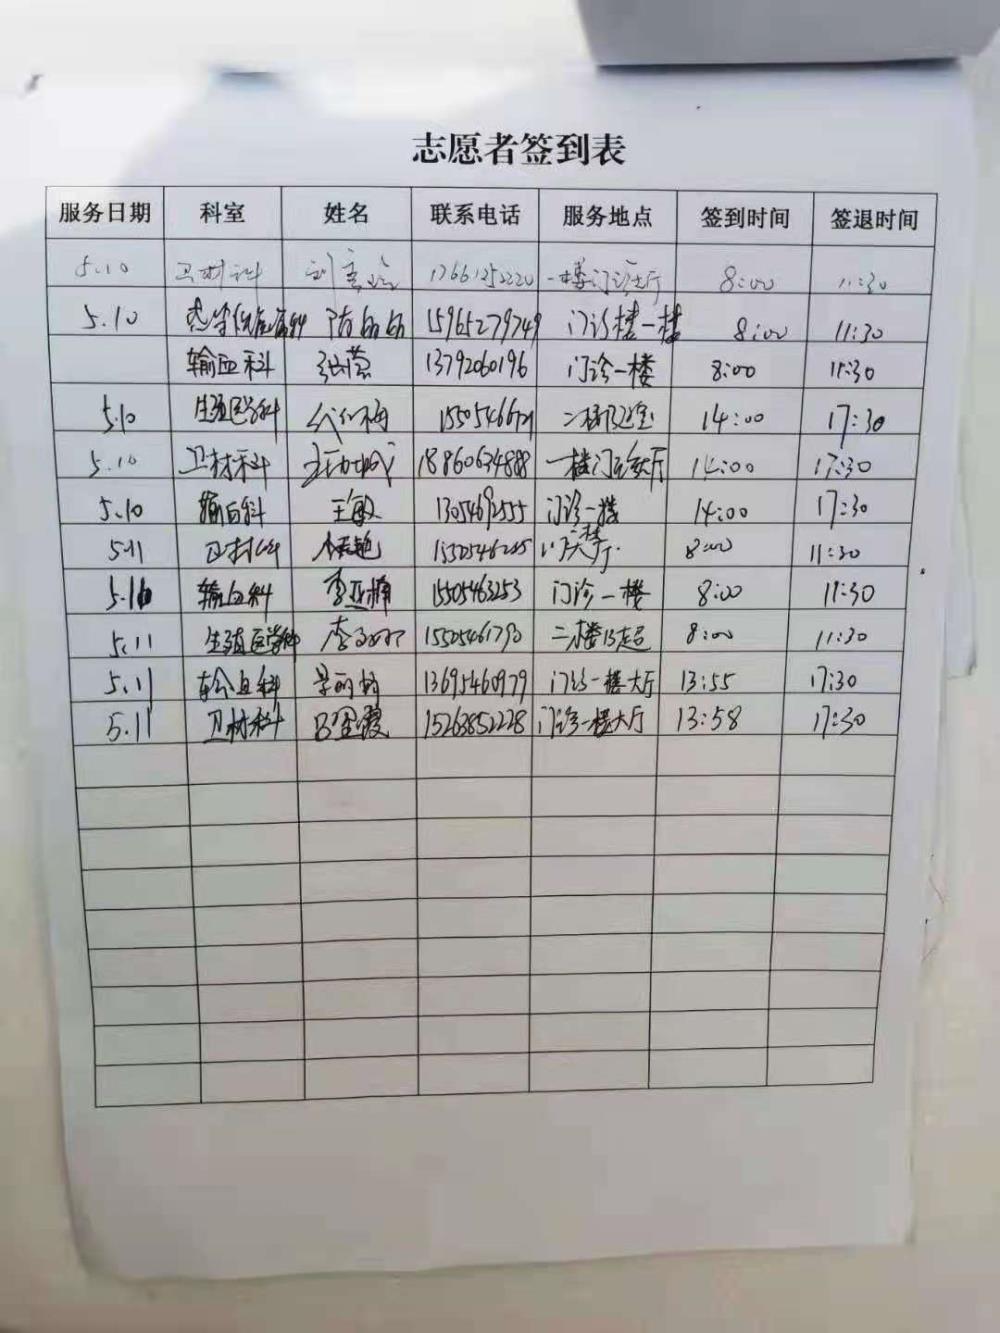 志愿者签到表
服务日期 科室 姓名 联系电话 服务地点 签到时间 签退时间
5.10 卫材科 17661252220 一楼门诊大厅 8:00 11:30
5.10 15965279749 门诊楼一楼 8:00 11:30
输血科 张蕾 13792060196 门诊一楼 8:00 11:30
5.10 生殖医学科 二楼 14:00 17:30
5.10 卫材科 18860634888 一楼门诊大厅 14:00 17:30
5.10 输血科 王敏 13054692555 门诊一楼 14:00 17:30
5.11 卫材科 8:00 11:30
输血科 李亚楠 15505463253 门诊一楼 8:00 11:30
5.11 生殖医学科 15505461790 二楼 8:00 11:30
5.11 输血科 13695460979 门诊一楼大厅 13:55 17:30
5.11 卫材科 吕金霞 15263852228 门诊一楼大厅 13:58 17:30